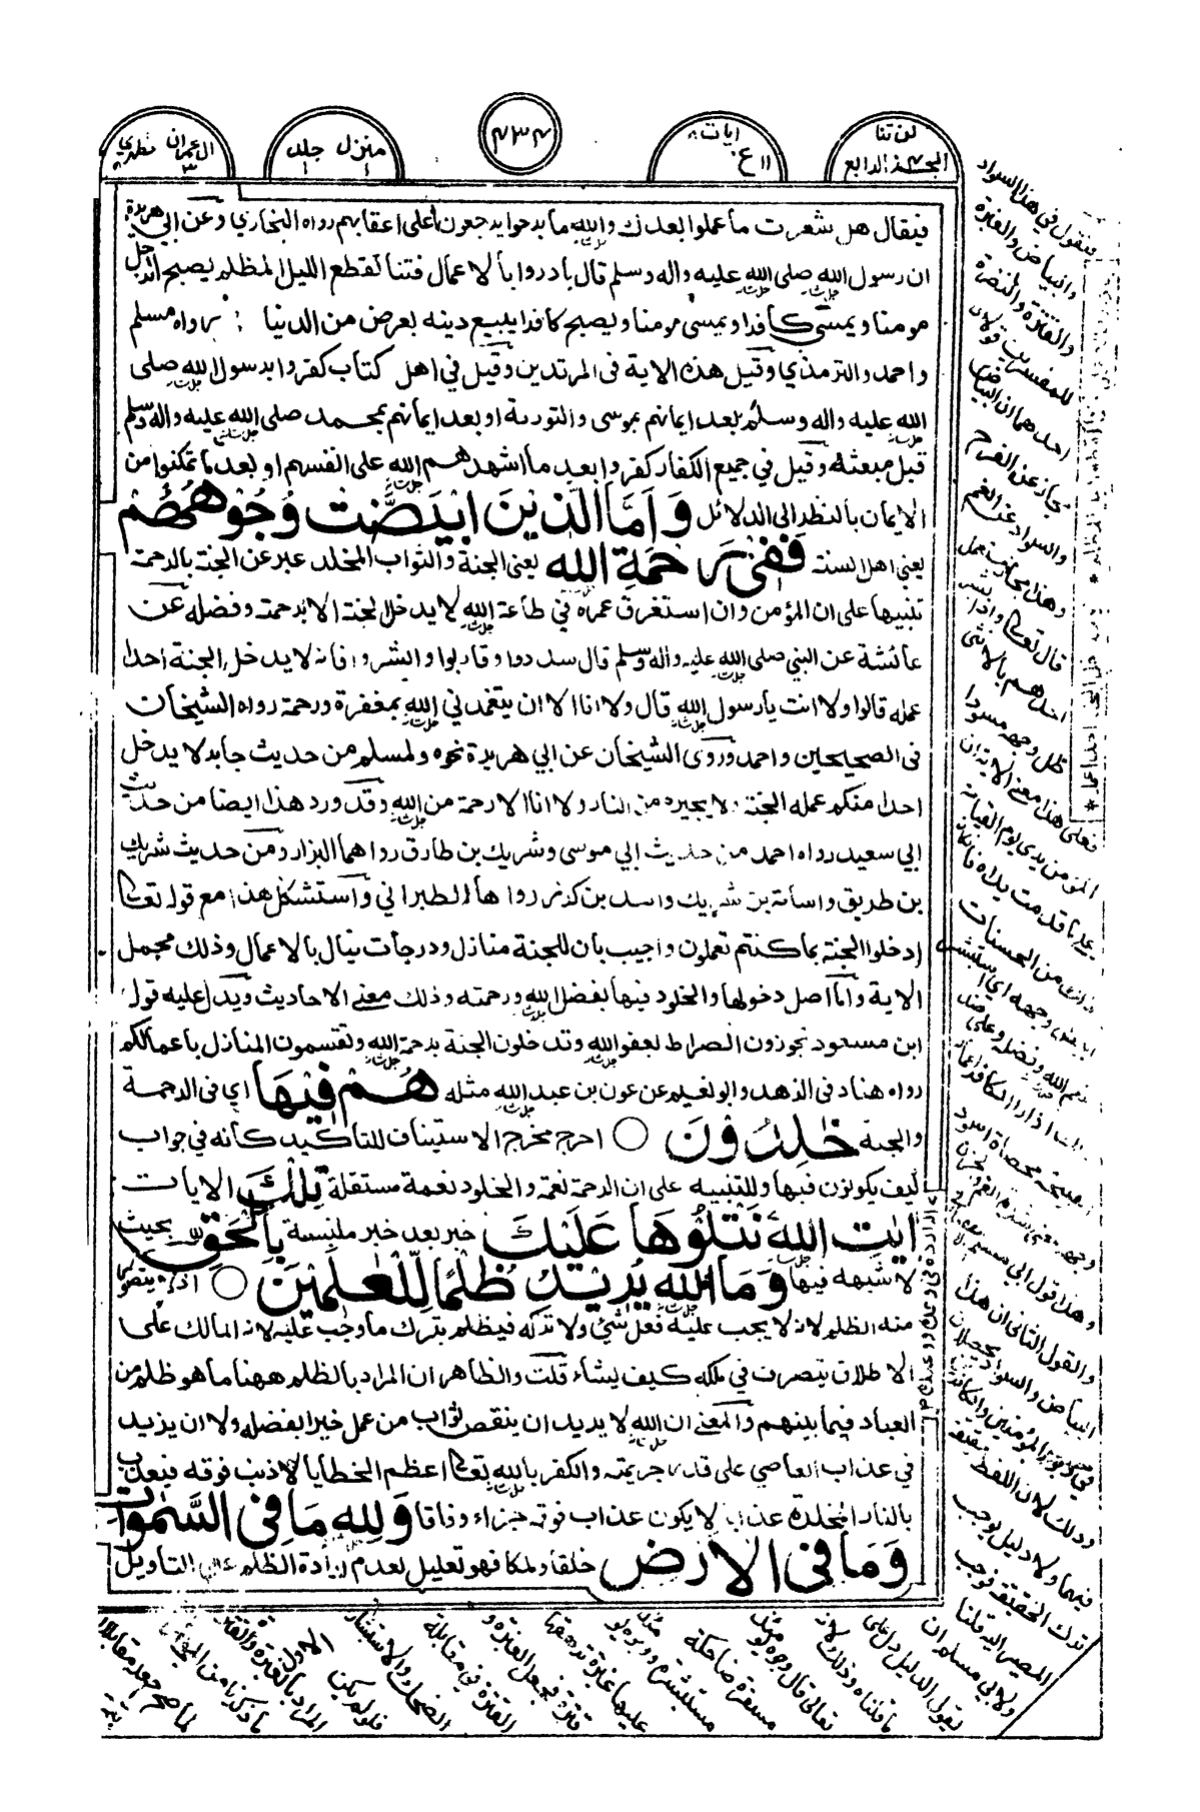 لن تنا
الجزء الرابع
ايات
١١ ع
٤٣٤
منزل جلد
١ ١
ال عمران مظهري
٣
فيقال هل شعرت ما عملوا بعدك والله ما برحوا يرجعون على اعقابهم رواه البخاري وعن ابي هريرة
ان رسول الله صلى الله عليه واله وسلم قال بادروا بالاعمال فتنا كقطع الليل المظلم يصبح الرجل
مومنا ويمسى كافرا ويمسى مومنا ويصبح كافرا يبيع دينه بعرض من الدنيا رواه مسلم
واحمد والترمذي وقيل هذه الاية فى المرتدين وقيل في اهل كتاب كفروا برسول الله صلى
الله عليه واله وسلم بعد ايمانهم بموسى والتورىة او بعد ايمانهم بمحمد صلى الله عليه واله وسلم
قبل مبعثه وقيل في جميع الكفار كفروا بعد ما اشهدهم الله على انفسهم او بعد ما تمكنوا من
الايمان بالنظر الى الدلائل وَاَمَّا الَّذِينَ ابْيَضَّتْ وُجُوْهُهُمْ
يعني اهل السنة فَفِىْ رَحْمَةِ الله يعنى الجنة والثواب المخلد عبر عن الجنة بالرحمة
تنبيها على ان المؤمن وان استغرق عمره في طاعة الله لا يدخل الجنة الا برحمته وفضله عن
عائشة عن النبي صلى الله عليه واله وسلم قال سددوا وقاربوا وابشروا فانه لا يدخل الجنة احدا
عمله قالوا ولا انت يا رسول الله قال ولا انا الا ان يتغمدني الله بمغفرة ورحمة رواه الشيخان
فى الصحيحين واحمد وروى الشيخان عن ابي هريرة نحوه ولمسلم من حديث جابر لا يدخل
احدا منكم عمله الجنة ولا يجيره من النار ولا انا الا رحمة من الله وقد ورد هذا ايضا من حديث
ابي سعيد رواه احمد من حديث ابي موسى وشريك بن طارق رواهما البزار ومن حديث شريك
بن طريق واسامة بن شريك واسد بن كرز رواها الطبراني واستشكل هذا مع قوله تعالى
ادخلوا الجنة بما كنتم تعملون واجيب بان للجنة منازل ودرجات ينال بالاعمال وذلك محمل
الاية واما اصل دخولها والخلود فيها بفضل الله ورحمته وذلك معنى الاحاديث ويدل عليه قول
ابن مسعود تجوزون الصراط بعفو الله وتدخلون الجنة برحمة الله وتقتسمون المنازل باعمالكم
رواه هناد فى الزهد وابو نعيم عن عون بن عبد الله مثله هُمْ فِيْهَا اي فى الرحمة
والجنة خٰلِدُوْنَ ○ اخرج مخرج الاستيناف للتاكيد كانه في جواب
كيف يكونون فيها وللتنبيه على ان الرحمة نعمة والخلود نعمة مستقلة تِلْكَ الايات
اٰيٰتُ اللهِ نَتْلُوْهَا عَلَيْكَ خبر بعد خبر ملتبسة بِالْحَقِّ بحيث
لا شبهة فيها وَمَا اللهُ يُرِيْدُ ظُلْمًا لِّلْعٰلَمِيْنَ ○ اذ لا يتصور
منه الظلم لانه لا يجب عليه فعل شئ ولا تركه فيظلم بترك ما وجب عليه لانه المالك على
الاطلاق يتصرف في ملكه كيف يشاء قلت والظاهر ان المراد بالظلم ههنا ما هو ظلم من
العباد فيما بينهم والمعنى ان الله لا يريد ان ينقص ثواب من عمل خيرا بفضله ولا ان يزيد
في عذاب العاصي على قدر جريمته والكفر بالله تعالى اعظم الخطايا لا ذنب فوقه فيعذب
بالنار المخلدة عذاب لا يكون عذاب فوقه جزاء وفاقا وَلِلّٰهِ مَا فِى السَّمٰوٰتِ
وَمَا فِى الْاَرْضِ خلقا وملكا فهو تعليل لعدم ارادة الظلم على التاويل
فنقول في هذا السواد
والبياض والغبرة
والقترة والنضرة
للمفسرين قولان
احدهما ان البياض
مجاز عن الفرح
والسواد عن الغم
وهذا مجاز مستعمل
قال تعالى واذا بشر
احدهم بالانثى
ظل وجهه مسودا
فعلى هذا معنى الاية ان
المؤمن يرى يوم القيامة
ما قدمت يداه فان كان
من الحسنات
ابيض وجهه اي استبشر
بنعم الله وفضله وعلى ضد
ذلك اذا راى الكافر اعماله
القبيحة محصاة اسود
وجهه
وهذا قول ابي مسلم
والقول الثانى ان هذا
البياض والسواد يحصلان
في وجوه المؤمنين والكافرين
وذلك لان اللفظ حقيقة
فيهما ولا دليل يوجب
ترك الحقيقة فوجب
المصير اليه قلنا
ولابي مسلم ان
يقول الدليل دل على
ما قلناه وذلك لانه
تعالى قال وجوه يومئذ
مسفرة ضاحكة
مستبشرة ووجوه يومئذ
عليها غبرة ترهقها
قترة فجعل الغبرة و
القترة في مقابلة
الضحك والاستبشار
فلو لم يكن
المراد بالغبرة والقترة
ما ذكرنا من المجاز
لما صح جعله مقابلا